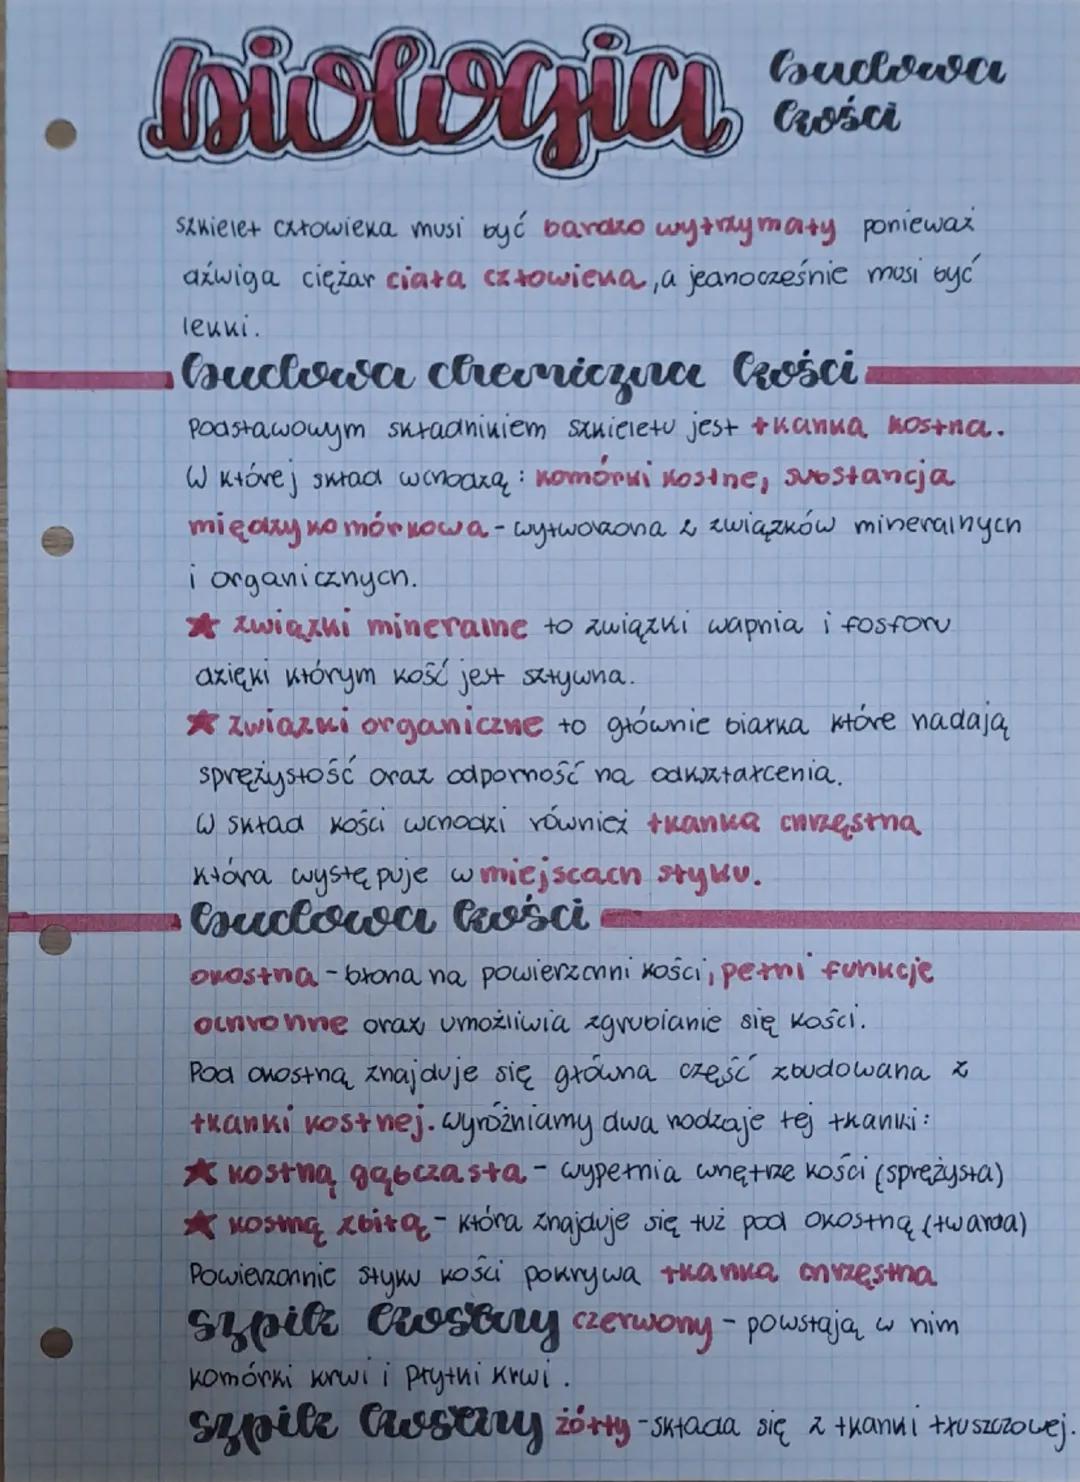 biologia budowa
kości
szkielet człowieka musi być bardzo wytrzymały ponieważ
dźwiga ciężar ciała człowieka, a jednocześnie musi być
lekki.
budowa chemiczna kości
Podstawowym składnikiem szkieletu jest tkanka kostna.
W której skład wchodzą: komórki kostne, substancja
międzykomórkowa - wytworzona z związków mineralnych
i organicznych.
★ związki mineralne to związki wapnia i fosforu
dzięki którym kość jest sztywna.
★ związki organiczne to głównie białka które nadają
sprężystość oraz odporność na odkształcenia.
W skład kości wchodzi również tkanka chrzęstna
która występuje w miejscach styku.
budowa kości
okostna - błona na powierzchni kości, pełni funkcje
ochronne oraz umożliwia zgrubianie się kości.
Pod okostną znajduje się główna część zbudowana z
tkanki kostnej. Wyróżniamy dwa rodzaje tej tkanki:
★ kostną gąbczasta - wypełnia wnętrze kości (sprężysta)
★ kostną zbitą - która znajduje się tuż pod okostną (twarda)
Powierzchnie styku kości pokrywa tkanka chrzęstna
szpik kostny czerwony - powstają w nim
komórki krwi i płytki krwi.
szpik kostny żółty - składa się z tkanki tłuszczowej.